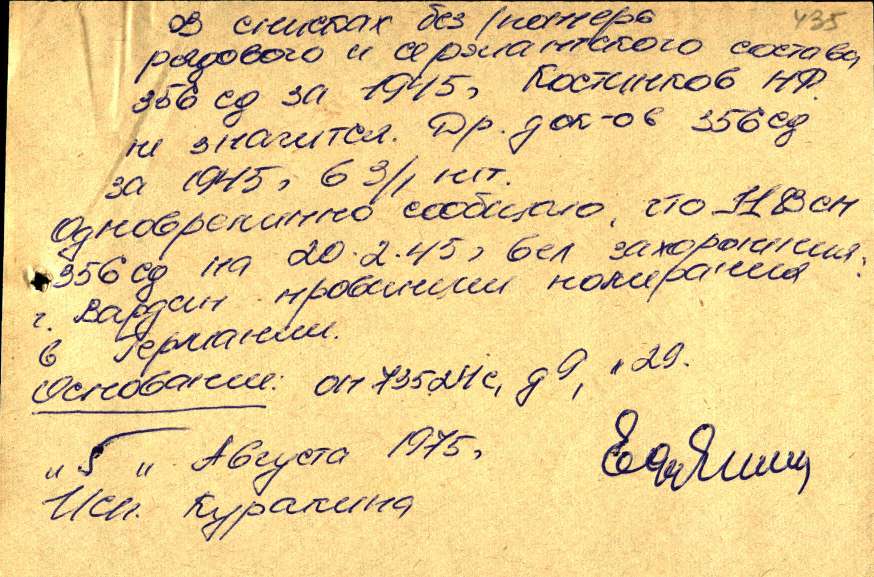 435
В списках без/потерь
рядового и сержантского состава
356 сд за 1945г Костинков НФ
не значится. Др. док-ов 356 сд
за 1945г б 3/1 нет.
Одновременно сообщаю, что
356 сд на 20.2.45г был захоронения:
г. Вардин провинции померания
в Германии.
Основание: оп 73521с, д 9, л 29.
„5“ Августа 1975г
Исп. Куракина